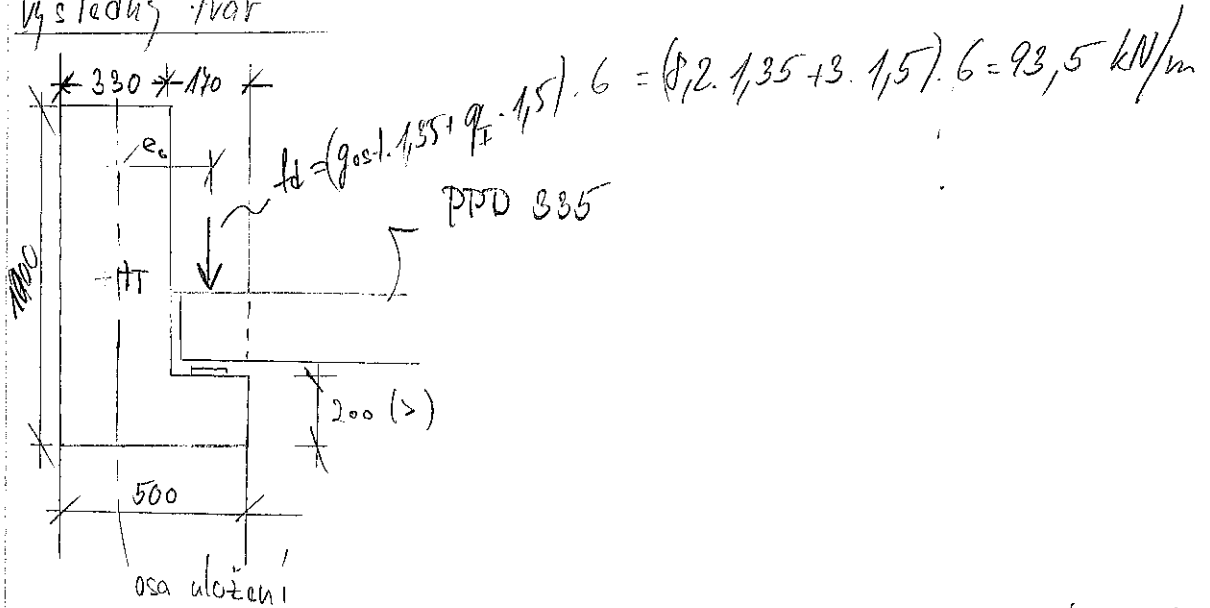 Výsledný tvar
330 170
fd = (gost. 1,35 + qI . 1,5) . 6 = (8,2 . 1,35 + 3 . 1,5) . 6 = 93,5 kN/m
e0
PPD 335
T
200 (>)
500
osa uložení